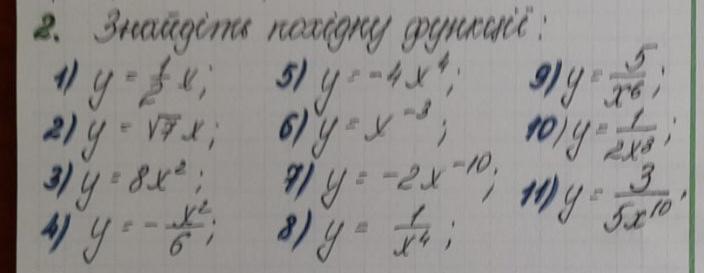 2. Знайдіть похідну функції:
1) y = 1/2 x;
2) y = √7 x;
3) y = 8x²;
4) y = - x²/6;
5) y = -4x⁴;
6) y = x⁻³;
7) y = -2x⁻¹⁰;
8) y = 1/x⁴;
9) y = 5/x⁶;
10) y = 1/2x⁸;
11) y = 3/5x¹⁰.